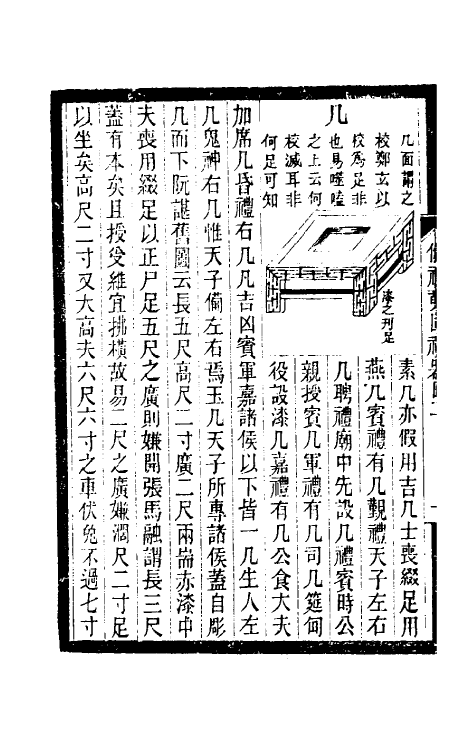 几
几面謂之
校鄭玄以
校爲足非
也易噬嗑
之上云何
校滅耳非
何足可知
漆之刋足
素几亦假用吉几士喪綴足用
燕几賓禮有几覲禮天子左右
几聘禮廟中先設几禮賓時公
親授賓几軍禮有几司几筵甸
役設漆几嘉禮有几公食大夫
加席几昏禮右几凡吉凶賓軍嘉諸侯以下皆一几生人左
几鬼神右几惟天子僃左右焉玉几天子所專諸侯蓋自彫
几而下阮諶舊圖云長五尺高尺二寸廣二尺兩耑赤漆中
夫喪用綴足以正尸足五尺之廣則嫌開張馬融謂長三尺
蓋有本矣且授受維宜拂横故易二尺之廣嫌濶尺二寸足
以坐矣高尺二寸又大高夫六尺六寸之車伏兔不過七寸